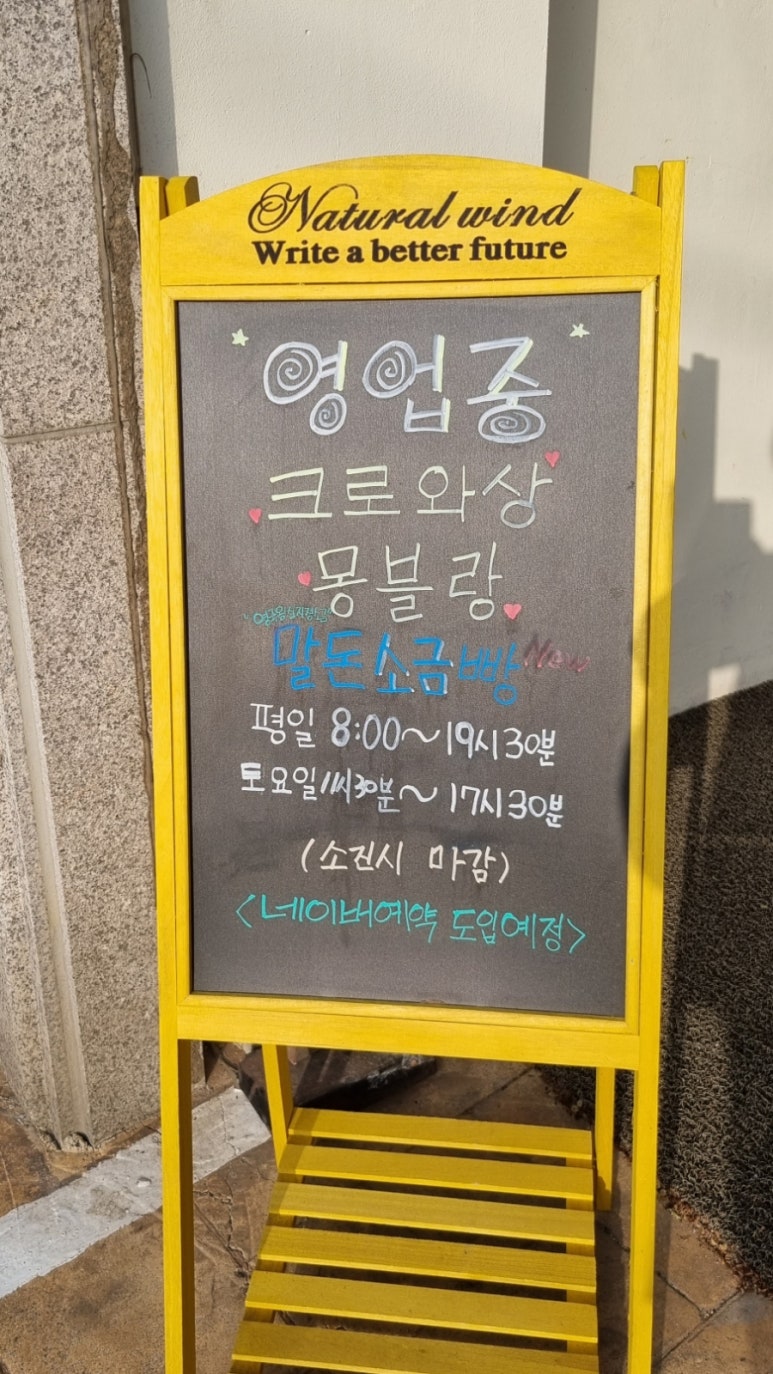 Natural wind
Write a better future
영업중
크로와상
몽블랑
말돈소금빵 New
평일 8:00~19시30분
토요일 11시30분~17시30분
(소진시 마감)
<네이버예약 도입예정>